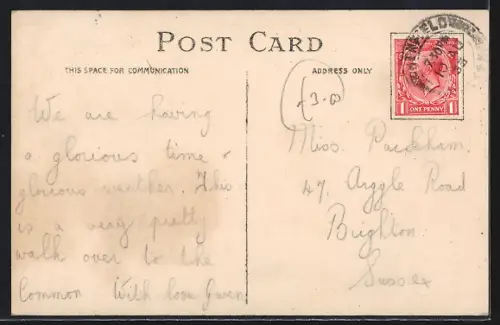 POST CARD
THIS SPACE FOR COMMUNICATION
ADDRESS ONLY
We are having
a glorious time &
glorious weather. This
is a very pretty
walk over to the
Common With love Gwen
Miss Packham.
47, Argyle Road
Brighton
Sussex
1 ONE PENNY 1